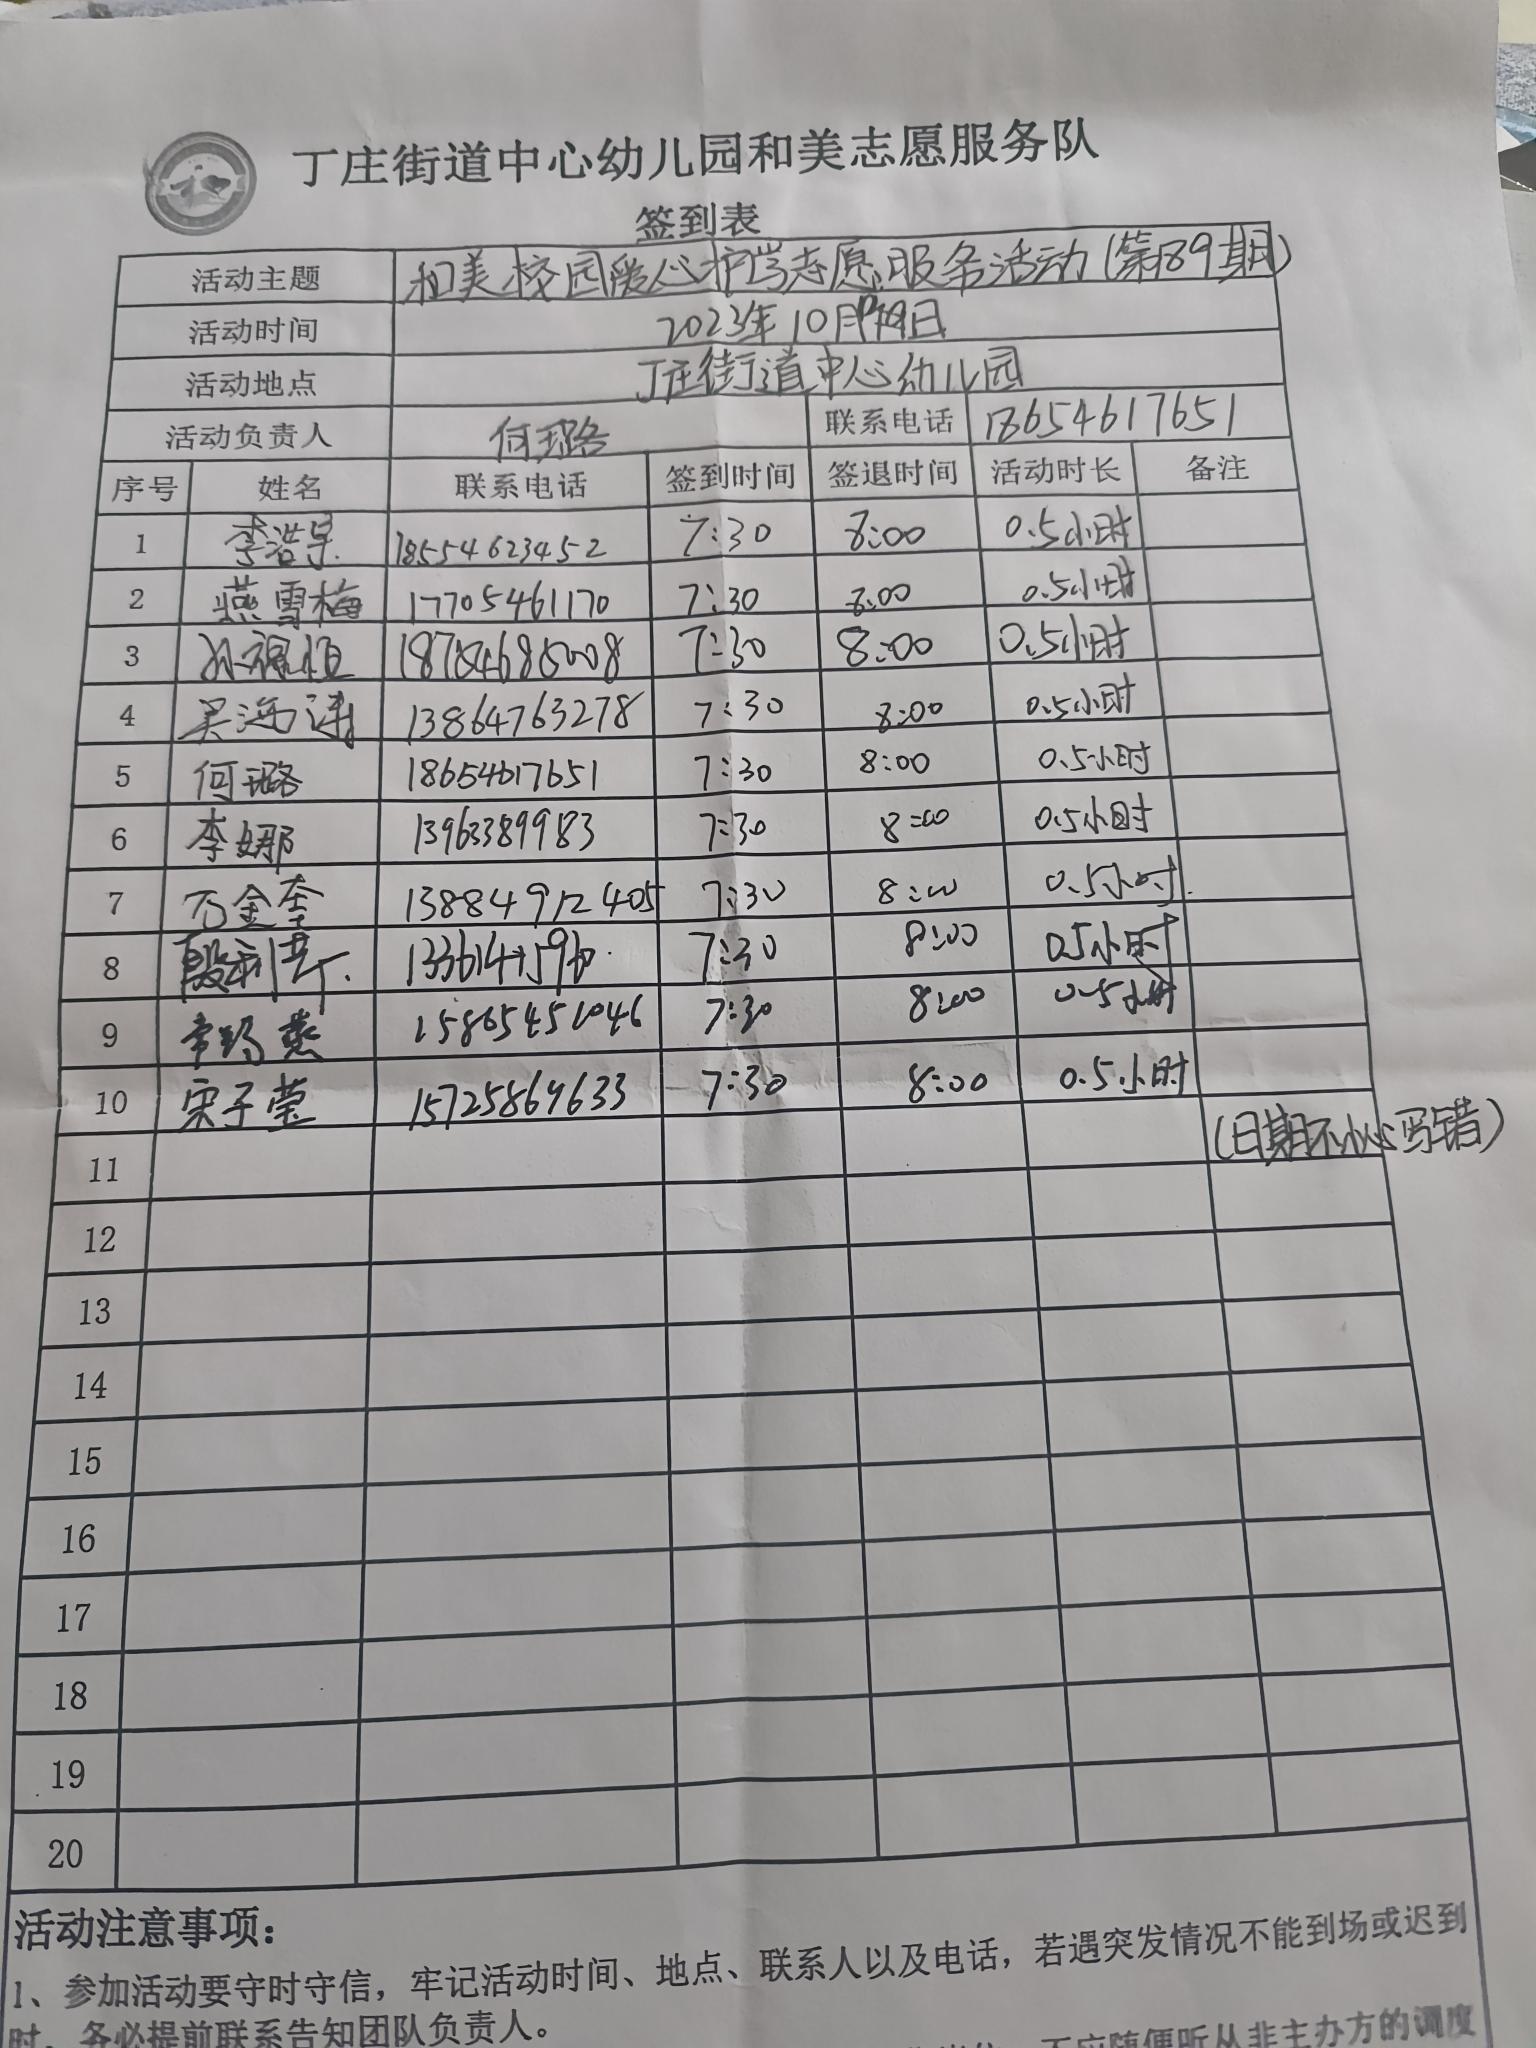 丁庄街道中心幼儿园和美志愿服务队
签到表
活动主题 和美校园爱心护学志愿服务活动(第189期)
活动时间 2023年10月19日
活动地点 丁庄街道中心幼儿园
活动负责人 何璐 联系电话 18654617651
序号 姓名 联系电话 签到时间 签退时间 活动时长 备注
1 李浩 18554623452 7:30 8:00 0.5小时
2 燕雪梅 17705461170 7:30 8:00 0.5小时
3 7:30 8:00 0.5小时
4 吴海涛 13864763278 7:30 8:00 0.5小时
5 何璐 18654617651 7:30 8:00 0.5小时
6 李娜 13963389983 7:30 8:00 0.5小时
7 万金奎 13884912405 7:30 8:00 0.5小时
8 7:30 8:00 0.5小时
9 15865451046 7:30 8:00 0.5小时
10 宋子莹 15725864633 7:30 8:00 0.5小时
(日期不小心写错)
11
12
13
14
15
16
17
18
19
20
活动注意事项：
1、参加活动要守时守信，牢记活动时间、地点、联系人以及电话，若遇突发情况不能到场或迟到
时，务必提前联系告知团队负责人。
不应随便听从非主办方的调度